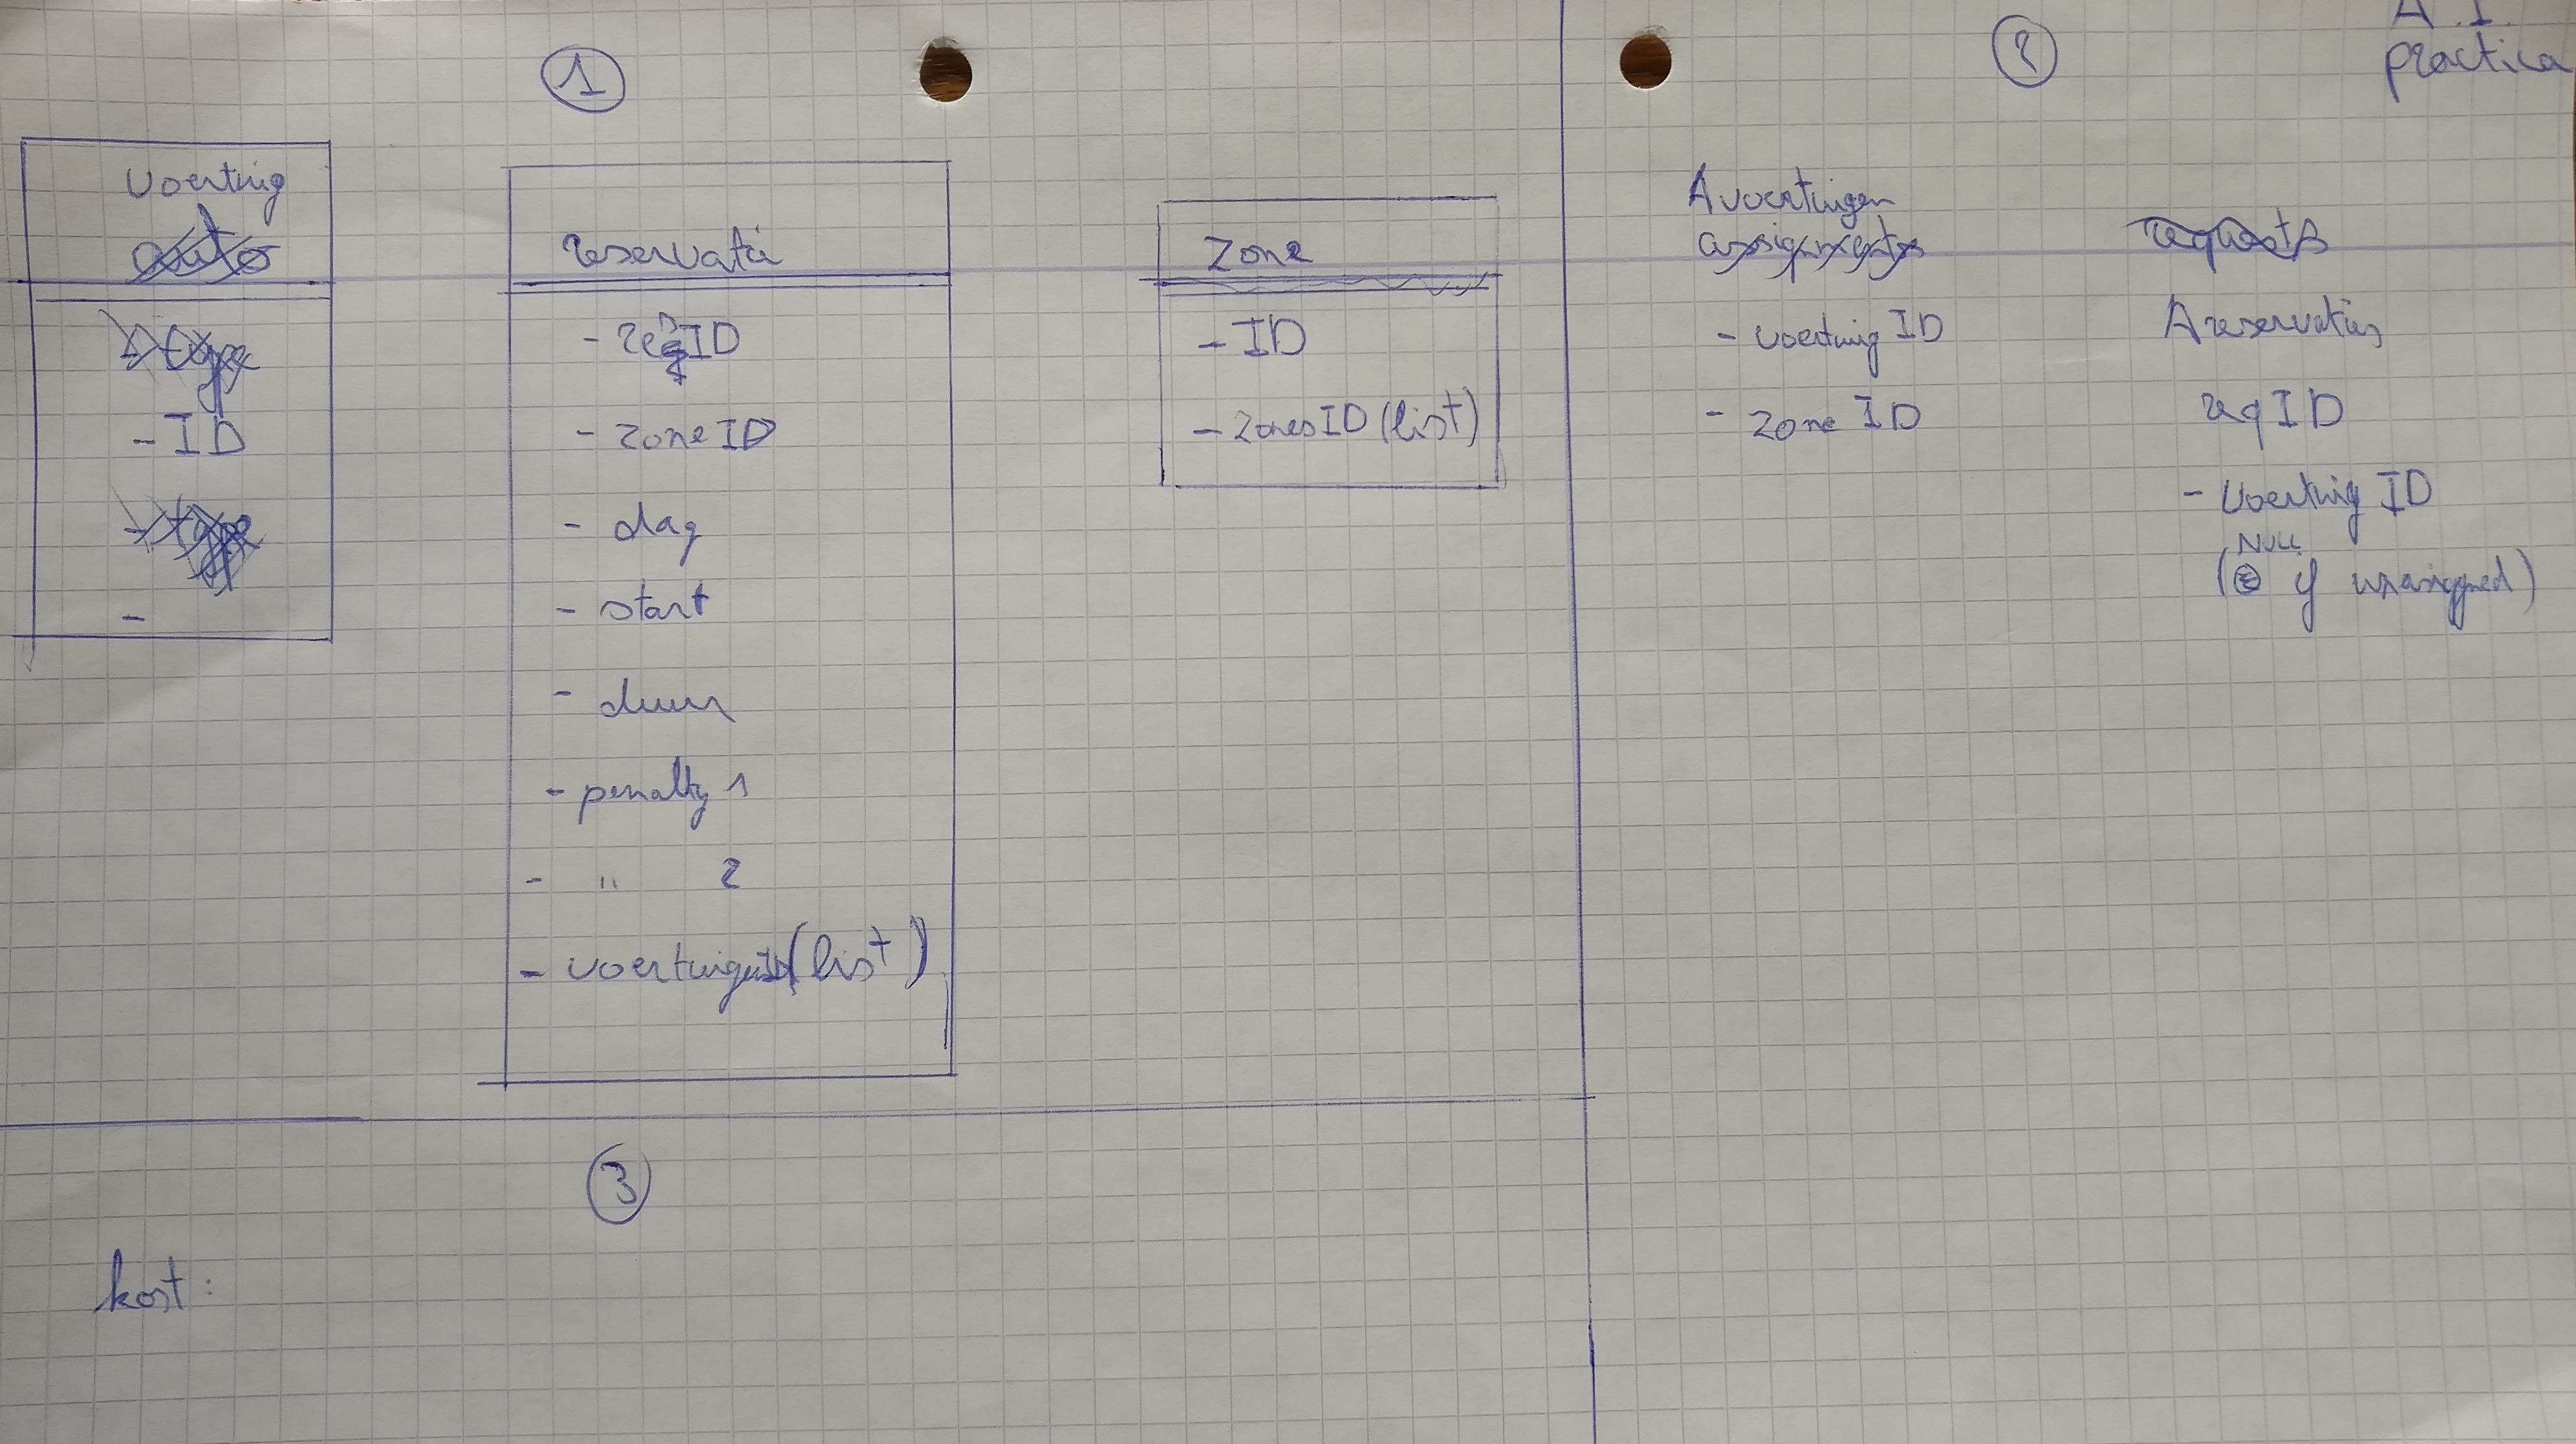 A.I.
practica
1
2
voertuig
auto
- ID
-
reservatie
- reqID
- zone ID
- dag
- start
- duur
- penalty 1
- " 2
- (list)
zone
- ID
- zonesID (list)
A voertuigen
assignments
- voertuig ID
- zone ID
requests
A reservaties
reqID
- voertuig ID
NULL
( if unassigned)
3
kost: